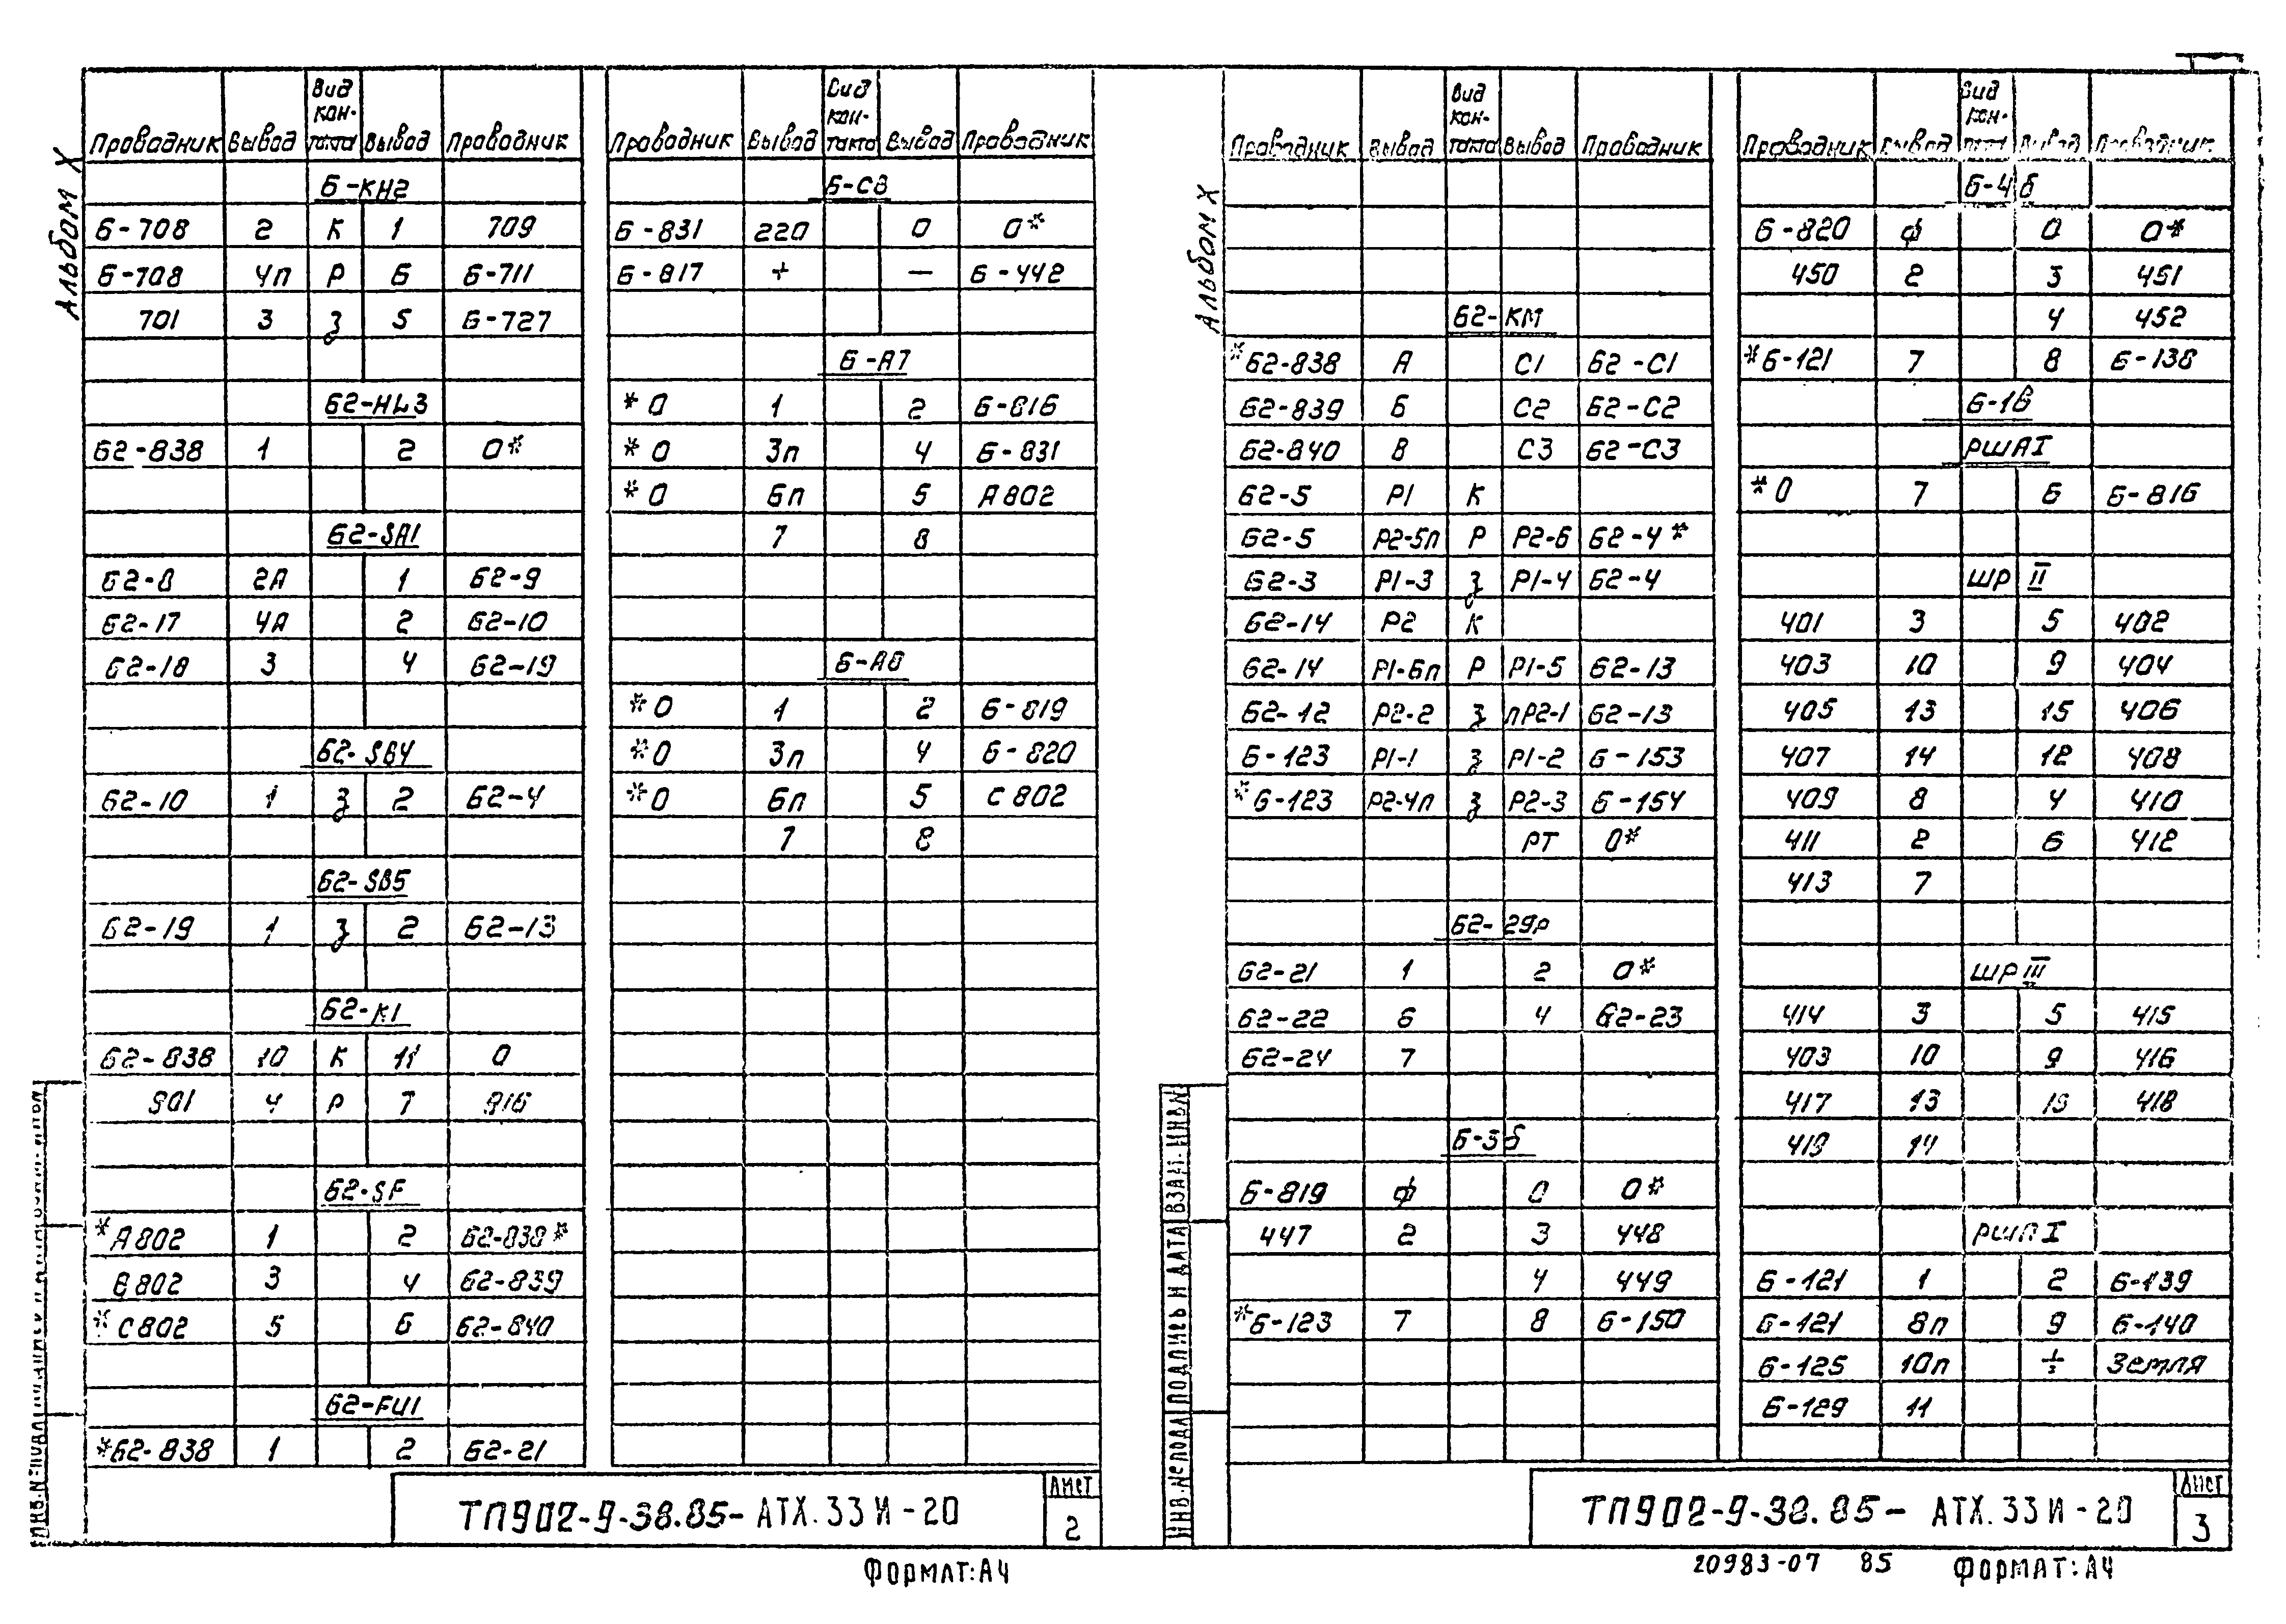 Альбом X
Проводник Вывод Вид кон-такта Вывод Проводник
Б-КН2
Б-708 2 К 1 709
Б-708 4п Р 6 Б-711
701 3 З 5 Б-727
Б2-HL3
Б2-838 1 2 0*
Б2-SA1
Б2-8 2А 1 Б2-9
Б2-17 4А 2 Б2-10
Б2-18 3 4 Б2-19
Б2-SB4
Б2-10 1 З 2 Б2-4
Б2-SB5
Б2-19 1 З 2 Б2-13
Б2-К1
Б2-838 10 К 11 0
901 4 Р 7 916
Б2-SF
*А802 1 2 Б2-838*
В802 3 4 Б2-839
*С802 5 6 Б2-840
Б2-FU1
*Б2-838 1 2 Б2-21
Проводник Вывод Вид кон-такта Вывод Проводник
Б-С8
Б-831 220 0 0*
Б-817 + — Б-442
Б-А7
*0 1 2 Б-816
*0 3п 4 Б-831
*0 6п 5 А802
7 8
Б-А8
*0 1 2 Б-819
*0 3п 4 Б-820
*0 6п 5 С802
7 8
ТП902-9-38.85-АТХ.33И-20
Лист
2
Формат: А4
Альбом X
Проводник Вывод Вид кон-такта Вывод Проводник
Б2-КМ
*Б2-838 А С1 Б2-С1
Б2-839 Б С2 Б2-С2
Б2-840 В С3 Б2-С3
Б2-5 Р1 К
Б2-5 Р2-5п Р Р2-6 Б2-4*
Б2-3 Р1-3 З Р1-4 Б2-4
Б2-14 Р2 К
Б2-14 Р1-6п Р Р1-5 Б2-13
Б2-12 Р2-2 З пР2-1 Б2-13
Б-123 Р1-1 З Р1-2 Б-153
*Б-123 Р2-4п З Р2-3 Б-154
РТ 0*
Б2-29р
Б2-21 1 2 0*
Б2-22 6 4 Б2-23
Б2-24 7
Б-3б
Б-819 ф 0 0*
447 2 3 448
4 449
*Б-123 7 8 Б-150
Проводник Вывод Вид кон-такта Вывод Проводник
Б-4б
Б-820 ф 0 0*
450 2 3 451
4 452
*Б-121 7 8 Б-138
Б-1в
РШАI
*0 7 6 Б-816
ШР II
401 3 5 402
403 10 9 404
405 13 15 406
407 14 12 408
409 8 4 410
411 2 6 412
413 7
ШР III
414 3 5 415
403 10 9 416
417 13 15 418
419 14
РШАI
Б-121 1 2 Б-139
Б-121 8п 9 Б-140
Б-125 10п ⏚ Земля
Б-129 11
Инв.№ подл. Подпись и дата Взам. инв.№
ТП902-9-38.85-АТХ.33И-20
Лист
3
20983-07 85 Формат: А4